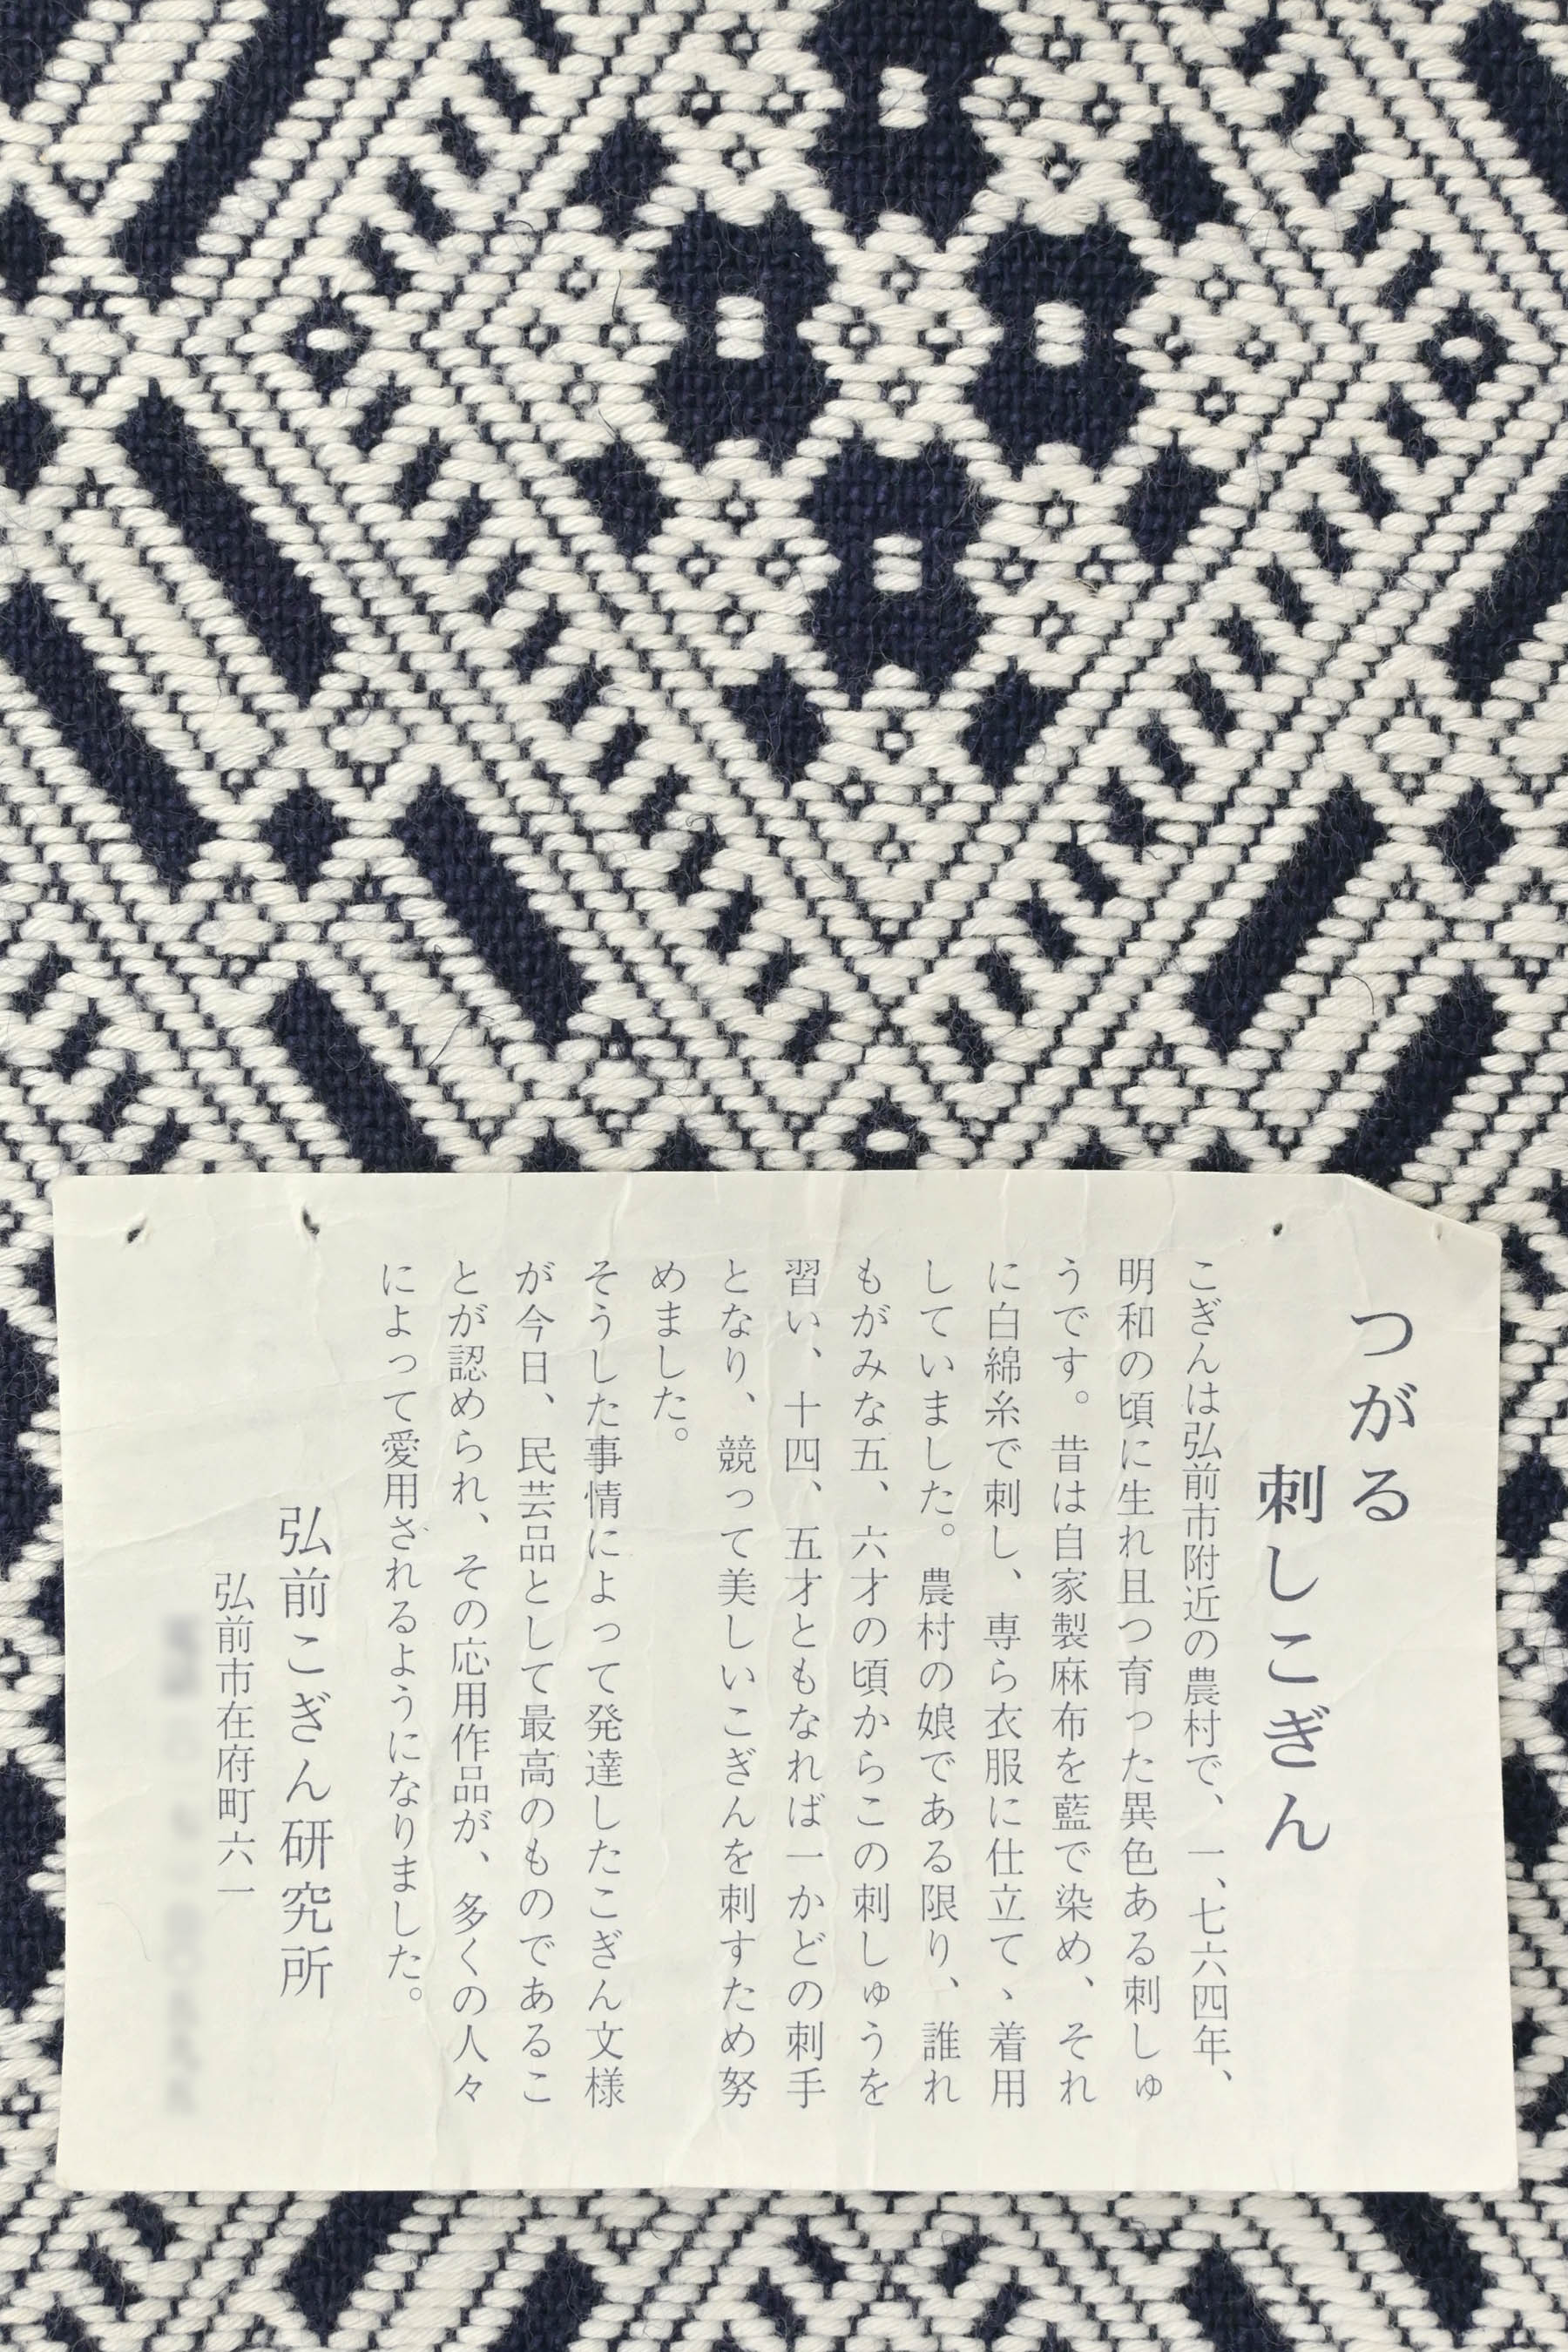 つがる
刺しこぎん
こぎんは弘前市附近の農村で、一、七六四年、
明和の頃に生れ且つ育った異色ある刺しゅ
うです。昔は自家製麻布を藍で染め、それ
に白綿糸で刺し、専ら衣服に仕立て、着用
していました。農村の娘である限り、誰れ
もがみな五、六才の頃からこの刺しゅうを
習い、十四、五才ともなれば一かどの刺手
となり、競って美しいこぎんを刺すため努
めました。
そうした事情によって発達したこぎん文様
が今日、民芸品として最高のものであるこ
とが認められ、その応用作品が、多くの人々
によって愛用されるようになりました。
弘前こぎん研究所
弘前市在府町六一